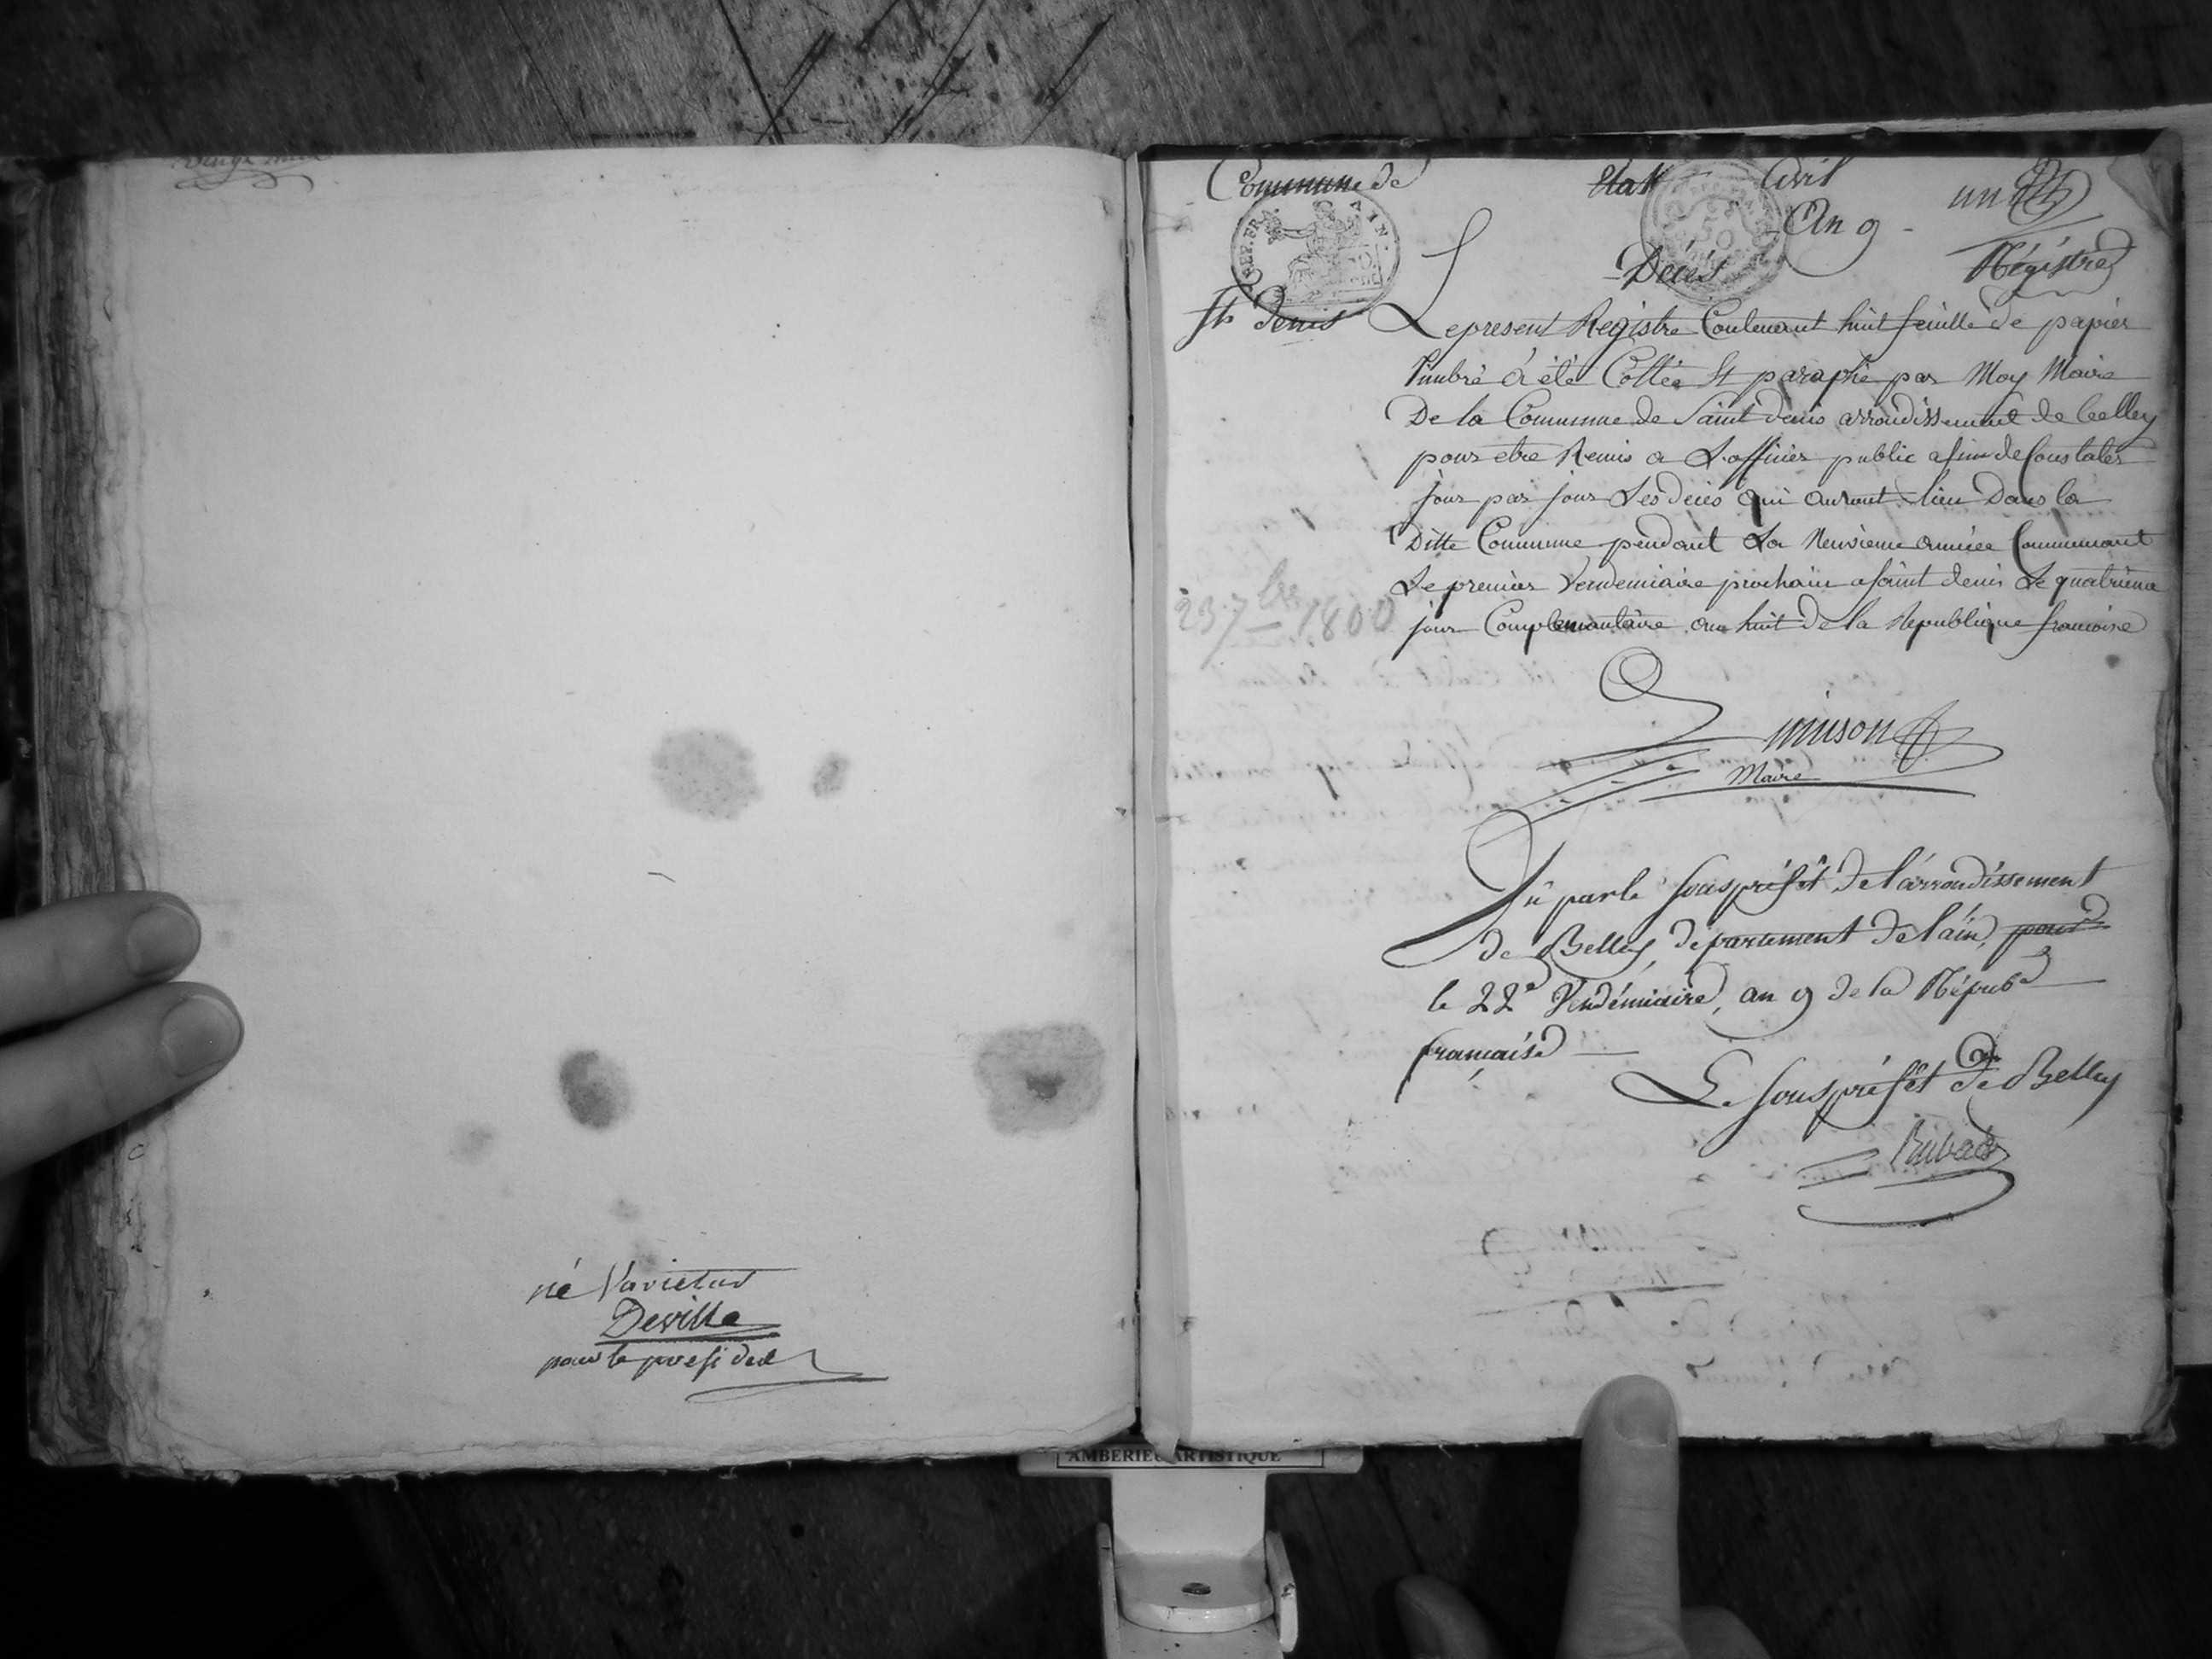 né Varietur
Deville
pour le president
Commune de
Etat Civil
un
An 9
Décès
Régistre
St denis
Le present Registre Contenant huit feuille de papier
timbré à été Cottée Et paraphé par Moy Maire
De la Commune de Saint denis arrondissement de belley
pour etre Remis a L'officier public afin de Constater
jour par jour Les deces qui auront lieu Dans la
Ditte Commune pendant La Neuvieme année Commencant
Le premier Vendemiaire prochain a saint denis Le quatrieme
jour Complementaire an huit de la Republique francoise
23 7bre 1800
Maire
Vû par le sous préfêt de l'arrondissement
de Belley, département de l'ain,
le 22e Vendémiaire, an 9 de la Répub
française
Le sous préfêt de Belley
REP. FRA.
AIN.
50
AMBERIEU ARTISTIQUE